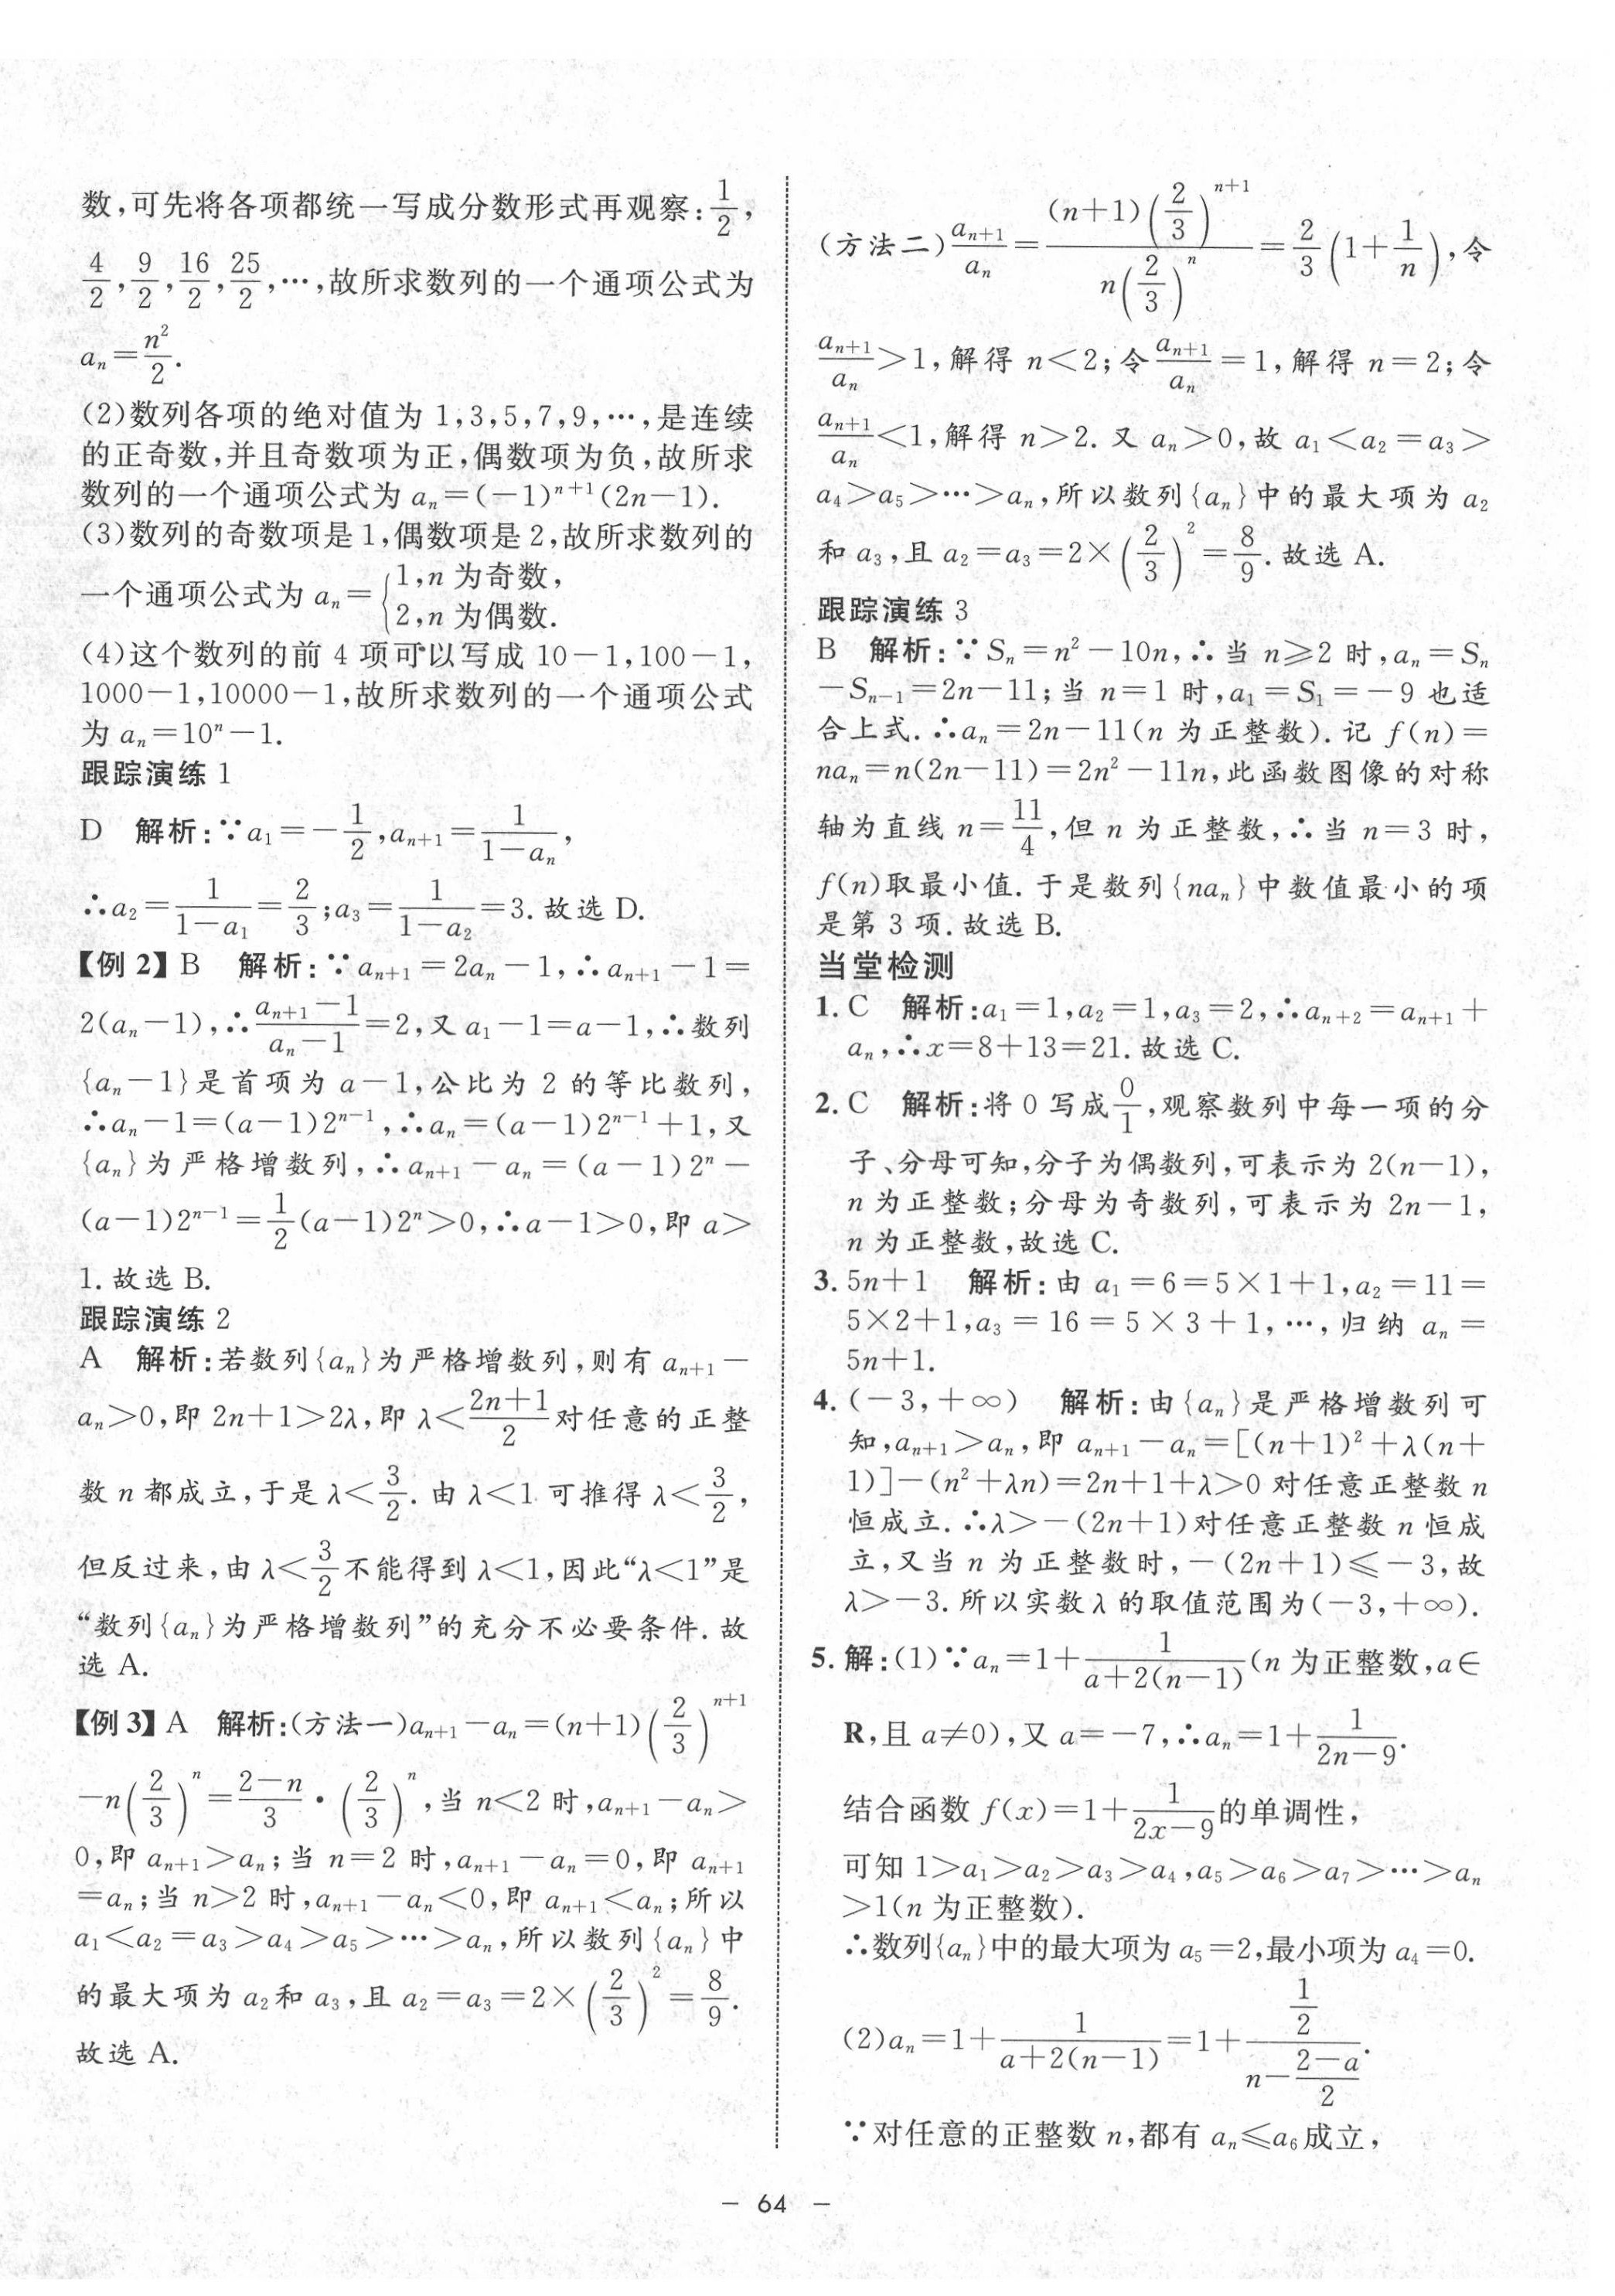 数,可先将各项都统一写成分数形式再观察:1/2,
4/2,9/2,16/2,25/2,…,故所求数列的一个通项公式为
aₙ=n²/2.
(2)数列各项的绝对值为 1,3,5,7,9,…,是连续
的正奇数,并且奇数项为正,偶数项为负,故所求
数列的一个通项公式为 aₙ=(−1)ⁿ⁺¹(2n−1).
(3)数列的奇数项是 1,偶数项是 2,故所求数列的
一个通项公式为 aₙ={1,n 为奇数,
2,n 为偶数.
(4)这个数列的前 4 项可以写成 10−1,100−1,
1000−1,10000−1,故所求数列的一个通项公式
为 aₙ=10ⁿ−1.
跟踪演练 1
D 解析:∵a₁=−1/2,aₙ₊₁=1/(1−aₙ),
∴a₂=1/(1−a₁)=2/3;a₃=1/(1−a₂)=3.故选 D.
【例 2】B 解析:∵aₙ₊₁=2aₙ−1,∴aₙ₊₁−1=
2(aₙ−1),∴(aₙ₊₁−1)/(aₙ−1)=2,又 a₁−1=a−1,∴数列
{aₙ−1}是首项为 a−1,公比为 2 的等比数列,
∴aₙ−1=(a−1)2ⁿ⁻¹,∴aₙ=(a−1)2ⁿ⁻¹+1,又
{aₙ}为严格增数列,∴aₙ₊₁−aₙ=(a−1)2ⁿ−
(a−1)2ⁿ⁻¹=1/2(a−1)2ⁿ>0,∴a−1>0,即 a>
1.故选 B.
跟踪演练 2
A 解析:若数列{aₙ}为严格增数列,则有 aₙ₊₁−
aₙ>0,即 2n+1>2λ,即 λ<(2n+1)/2 对任意的正整
数 n 都成立,于是 λ<3/2.由 λ<1 可推得 λ<3/2,
但反过来,由 λ<3/2 不能得到 λ<1,因此“λ<1”是
“数列{aₙ}为严格增数列”的充分不必要条件.故
选 A.
【例 3】A 解析:(方法一)aₙ₊₁−aₙ=(n+1)(2/3)ⁿ⁺¹
−n(2/3)ⁿ=(2−n)/3·(2/3)ⁿ,当 n<2 时,aₙ₊₁−aₙ>
0,即 aₙ₊₁>aₙ;当 n=2 时,aₙ₊₁−aₙ=0,即 aₙ₊₁
=aₙ;当 n>2 时,aₙ₊₁−aₙ<0,即 aₙ₊₁<aₙ;所以
a₁<a₂=a₃>a₄>a₅>…>aₙ,所以数列{aₙ}中
的最大项为 a₂和 a₃,且 a₂=a₃=2×(2/3)²=8/9.
故选 A.
(方法二)aₙ₊₁/aₙ=(n+1)(2/3)ⁿ⁺¹/n(2/3)ⁿ=2/3(1+1/n),令
aₙ₊₁/aₙ>1,解得 n<2;令 aₙ₊₁/aₙ=1,解得 n=2;令
aₙ₊₁/aₙ<1,解得 n>2.又 aₙ>0,故 a₁<a₂=a₃>
a₄>a₅>…>aₙ,所以数列{aₙ}中的最大项为 a₂
和 a₃,且 a₂=a₃=2×(2/3)²=8/9.故选 A.
跟踪演练 3
B 解析:∵Sₙ=n²−10n,∴当 n≥2 时,aₙ=Sₙ
−Sₙ₋₁=2n−11;当 n=1 时,a₁=S₁=−9 也适
合上式.∴aₙ=2n−11(n 为正整数).记 f(n)=
naₙ=n(2n−11)=2n²−11n,此函数图像的对称
轴为直线 n=11/4,但 n 为正整数,∴当 n=3 时,
f(n)取最小值.于是数列{naₙ}中数值最小的项
是第 3 项.故选 B.
当堂检测
1.C 解析:a₁=1,a₂=1,a₃=2,∴aₙ₊₂=aₙ₊₁+
aₙ,∴x=8+13=21.故选 C.
2.C 解析:将 0 写成0/1,观察数列中每一项的分
子、分母可知,分子为偶数列,可表示为 2(n−1),
n 为正整数;分母为奇数列,可表示为 2n−1,
n 为正整数,故选 C.
3.5n+1 解析:由 a₁=6=5×1+1,a₂=11=
5×2+1,a₃=16=5×3+1,…,归纳 aₙ=
5n+1.
4.(−3,+∞) 解析:由{aₙ}是严格增数列可
知,aₙ₊₁>aₙ,即 aₙ₊₁−aₙ=[(n+1)²+λ(n+
1)]−(n²+λn)=2n+1+λ>0 对任意正整数 n
恒成立.∴λ>−(2n+1)对任意正整数 n 恒成
立,又当 n 为正整数时,−(2n+1)≤−3,故
λ>−3.所以实数 λ 的取值范围为(−3,+∞).
5.解:(1)∵aₙ=1+1/(a+2(n−1))(n 为正整数,a∈
R,且 a≠0),又 a=−7,∴aₙ=1+1/(2n−9).
结合函数 f(x)=1+1/(2x−9)的单调性,
可知 1>a₁>a₂>a₃>a₄,a₅>a₆>a₇>…>aₙ
>1(n 为正整数).
∴数列{aₙ}中的最大项为 a₅=2,最小项为 a₄=0.
(2)aₙ=1+1/(a+2(n−1))=1+(1/2)/(n−(2−a)/2).
∵对任意的正整数 n,都有 aₙ≤a₆成立,
− 64 −